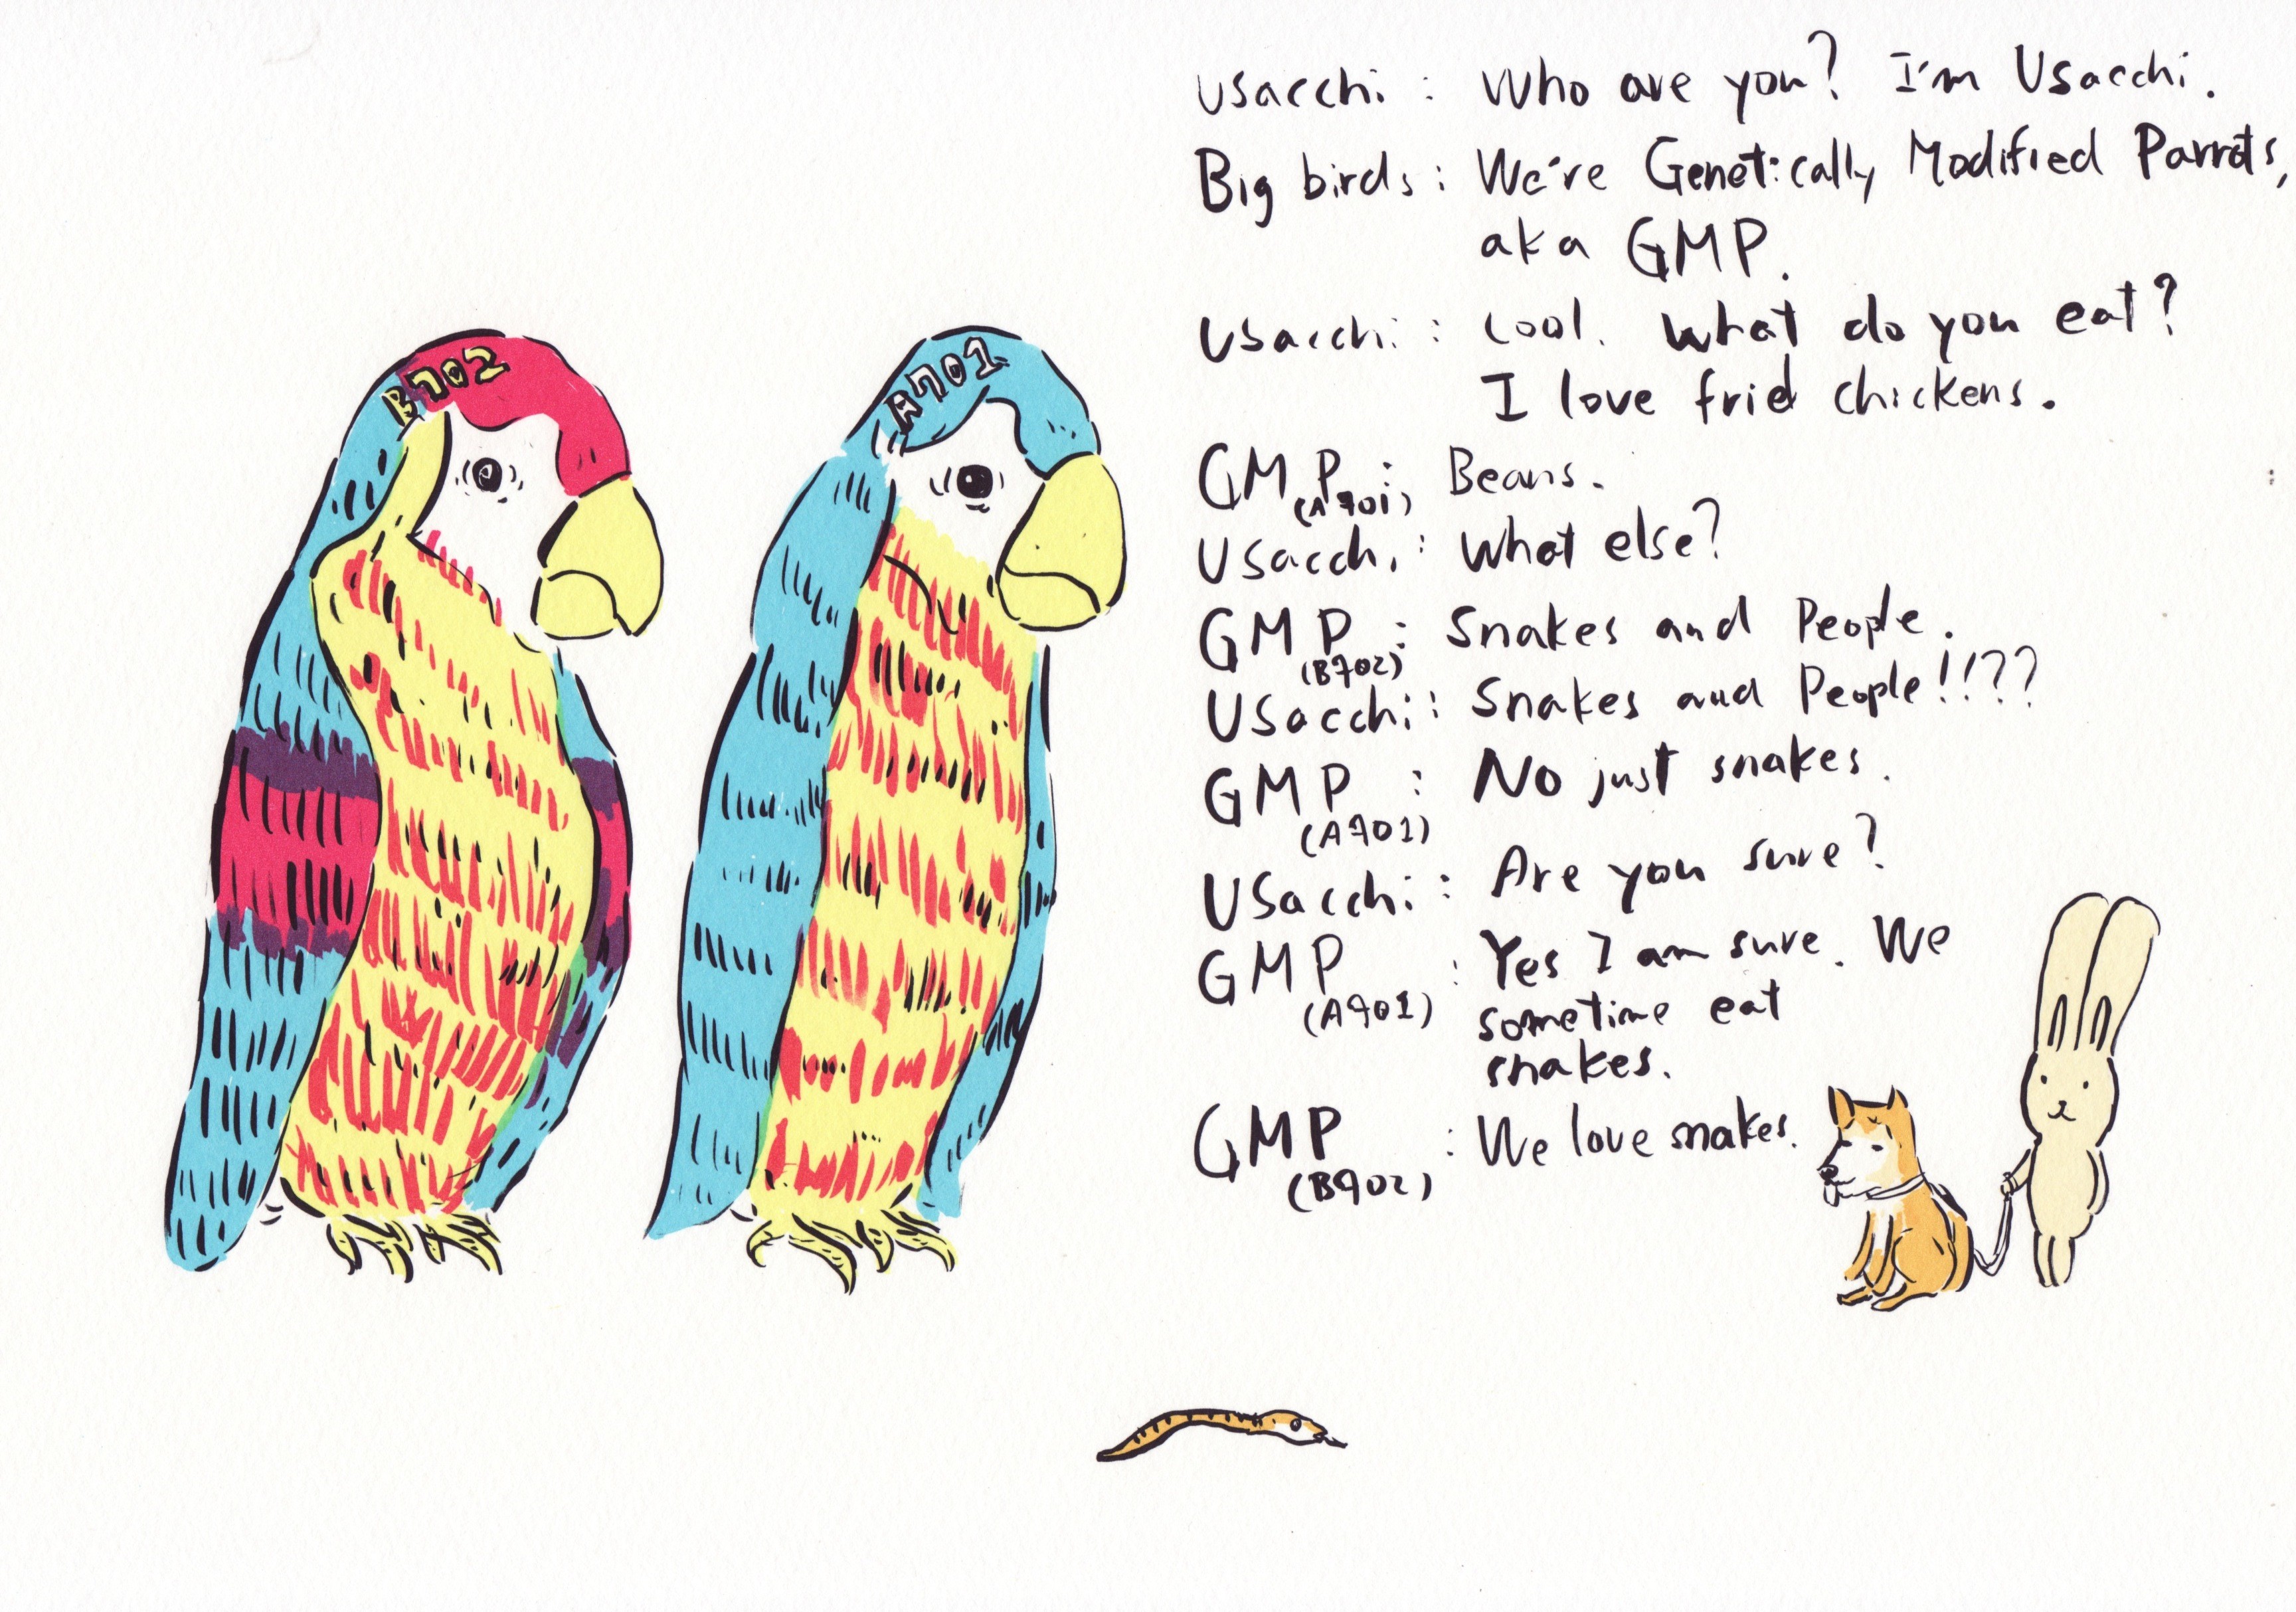 B702
A701
Usacchi : Who are you? I'm Usacchi.
Big birds : We're Genetically Modified Parrots,
aka GMP.
Usacchi : Cool. What do you eat?
I love fried chickens.
GMP (A701) : Beans.
Usacchi : What else?
GMP (B702) : Snakes and People.
Usacchi : Snakes and People!!??
GMP (A701) : No just snakes.
Usacchi : Are you sure?
GMP (A701) : Yes I am sure. We
sometime eat
snakes.
GMP (B702) : We love snakes.